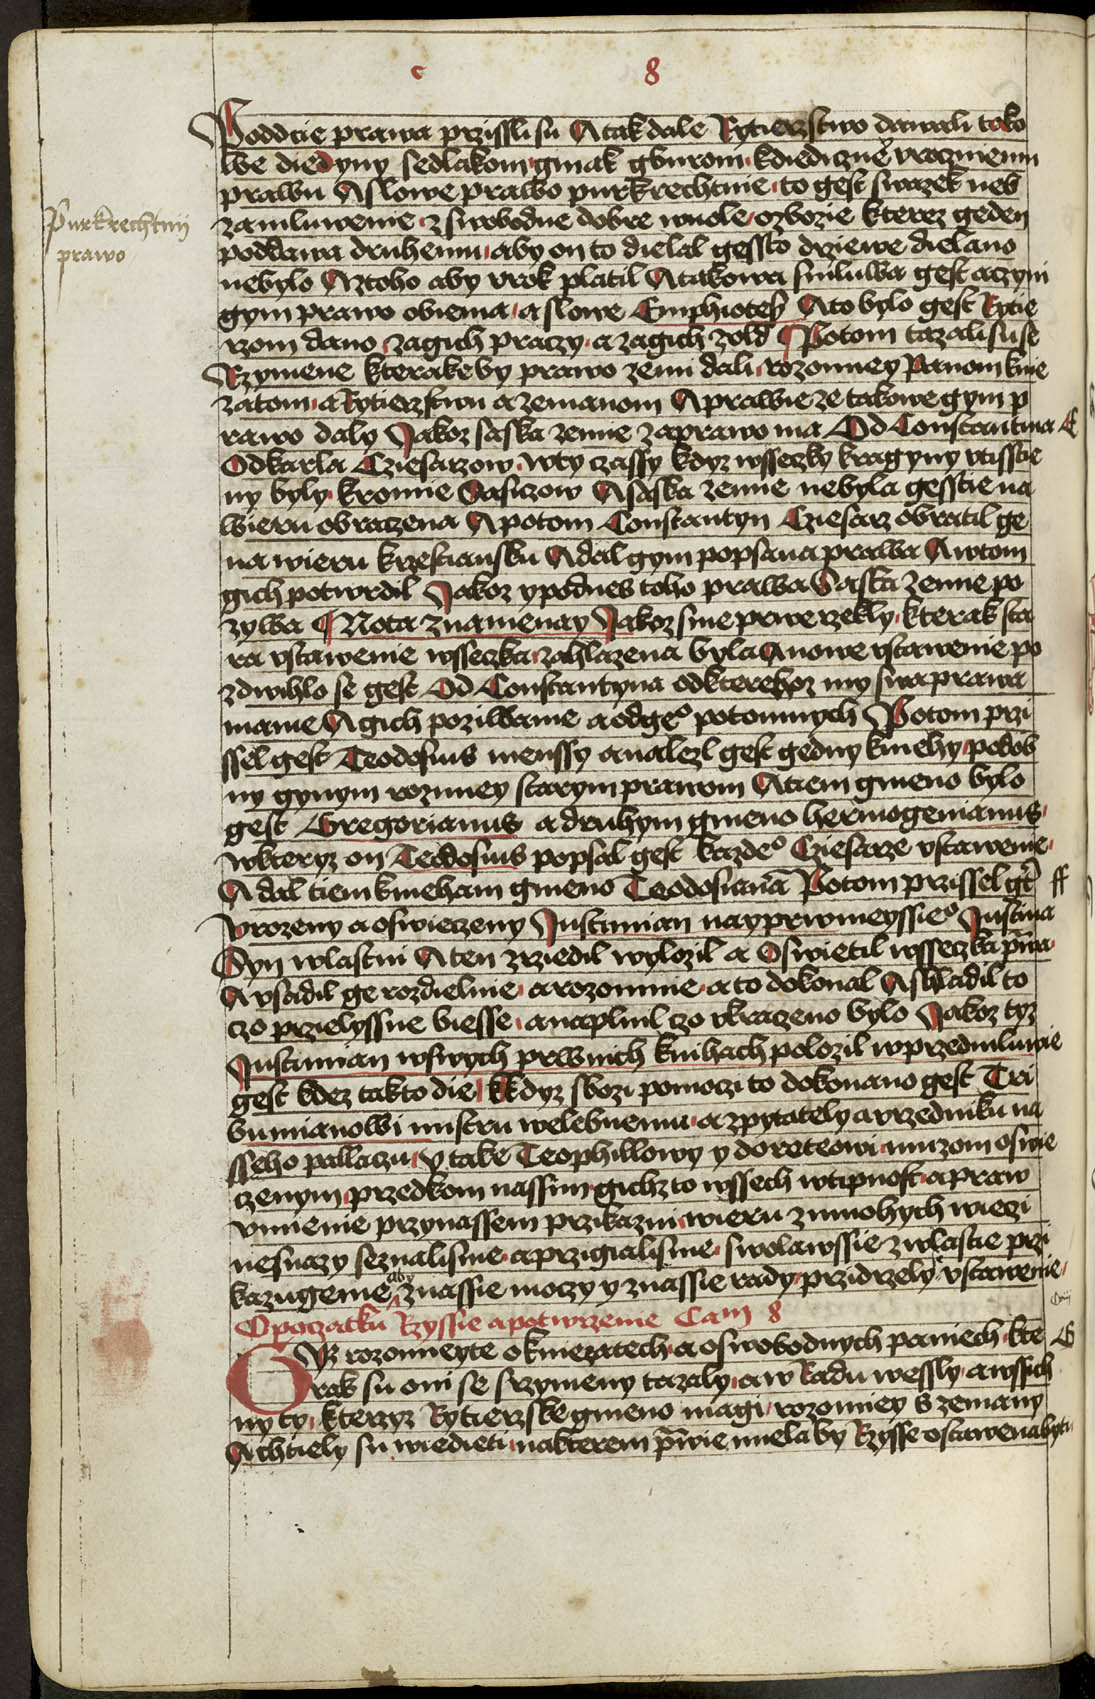 c 8
Poddcie prawa przissli su A tak dale Rytierzstwo dawali toko
we diedyny sedlakom ginak gburom kdiediczne vroczniemu
prawu A slowe prawo purkrechtnie to gest swazek neb
zamluwenie z swobodne dobre wuole o zbozie kterez geden
poddawa druhemu aby on to dielal gessto drziewe dielano
nebylo A z toho aby vrok platil A takowa smluwa gest a czyni
gym prawo obiema a slowe Emphioteſ A to bylo gest Rytie
rzom dano za gich praczy a za gich zold Potom tazali su se
Rzymene kterakeby prawo zemi dali rozomney Panom knie
zatom a Rytierzstwu a zemanom A prawie ze takowe gym p
rawo daly Jakoz saska zemie za prawo ma Od Constantina E
Od karla Cziesarzow w ty czassy kdyz wsseczky kragyny vtisstie
ny byly kromie Sasiczow A saska zemie nebyla gesstie na
wieru obraczena A potom Constantyn Cziesarz obratil ge
na wieru krzestiansku A dal gym popsana prawa A w tom
gich potwrdil Jakoz y podnes toho prawa Saska zemie po
zywa Nota znamenay Jakoz sme prwe rzekly kterak sta
ra vstawenie wsseczka zahlazena byla A nowe vstawenie po
zdwihlo se gest Od Constantyna od kterehoz my swa prawa
mame A gich poziwame a od geo potomnych Potom przi
ssel gest Teodosius menssy a nalezl gest gedny kniehy podob
ny gynym rozumey starym prawom A tiem gmeno bylo
gest Gregorianus a druhym gmeno hermogenianus
w kteryz on Teodosius popsal gest kazdeo Cziesarze vstawenie
A dal tiem knieham gmeno Teodosiana Potom przissel gt ff
Vrozeny a oswieczeny Justinian nayprwnieyssieo Justina
Syn wlastni A ten zrziedil wylozil a Oswietil wsseczka pwa
A vsadil ge rozdielnie a rozomnie a to dokonal A skladil to
czo przielyssne biesse a naplnil czo vkraczeno bylo Jakoz tyz
Justinian w swych prwnich knihach polozil w przedmluwie
gest kdez takto die Kdyz s bozi pomoczi to dokonano gest Tri
bunianowi mistru welebnemu a zpytately a vrzedniku na
sseho pallaczu y take Teophillowy y doroteowi muzom oswie
czenym przedkom nassim gichzto wssech wtipnost a praw
vmienie przy nassem przikazni wieru z mnohych wieczi
nesuczy seznalisme a przigialisme swolawssie zwlastie przi
kazugeme aby z nassie moczy y z nassie rady przidrzely vstawenie
O poczatku Rzyssie a potwrzenie Cam 8
Giz rozomneyte o kniezatech a o swobodnych paniech kte G
rak su oni se s rzymeny tazaly a w Radu wessly a wssich
ny ty kterzyz Rytierzske gmeno magi rozomney s zemany
A chtiely su wiedieti na kterem pwie mielaby Rzysse ostawena byti
Purkrechtnij
prawo